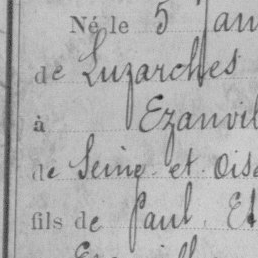 Né le 5 Jan
de Luzarches
à Ezanvil
de Seine et Oise
fils de Paul Et
Ezanvill